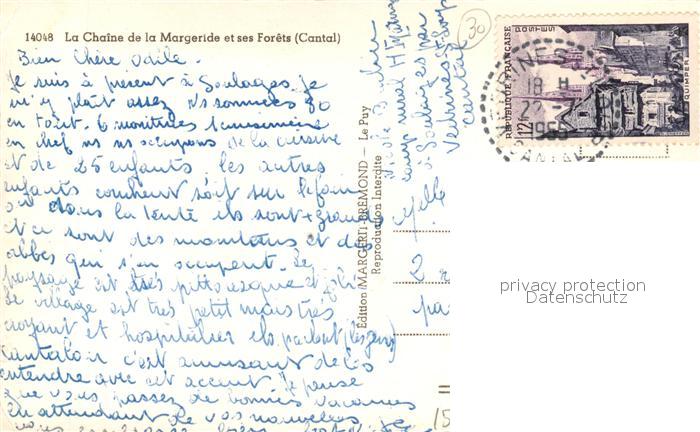 14048 La Chaîne de la Margeride et ses Forêts (Cantal)
Bien chère Odile.
Je suis à présent à Soulages. Je
m'y plait assez Ns sommes 30
en tout. 6 monitrices 1 cuisinière
en chef ns ns occupons de la cuisine
et de 25 enfants les autres
enfants couchent soit sur le foin
ou dans la tente ils sont + grands
et ce sont des moniteurs et des
abbés qui s'en occupent. Le
paysage est très pittoresque et joli
Le village est très petit mais très
croyant et hospitalier ils parlent (les gens)
cantalou c'est amusant de les
entendre avec cet accent. Je pense
que vous passez de bonnes vacances
En attendant de vos nouvelles je
vous
Édition MARGERIT-BREMOND - Le Puy
Reproduction Interdite
camp rural
à Soulages par
Vedrines-St-Loup
Cantal
Melle
2
pa
15
30
POSTES
RÉPUBLIQUE FRANÇAISE
QUIMPER
12F
VEDRINES
18 H
22
1955
CANTAL
privacy protection
Datenschutz